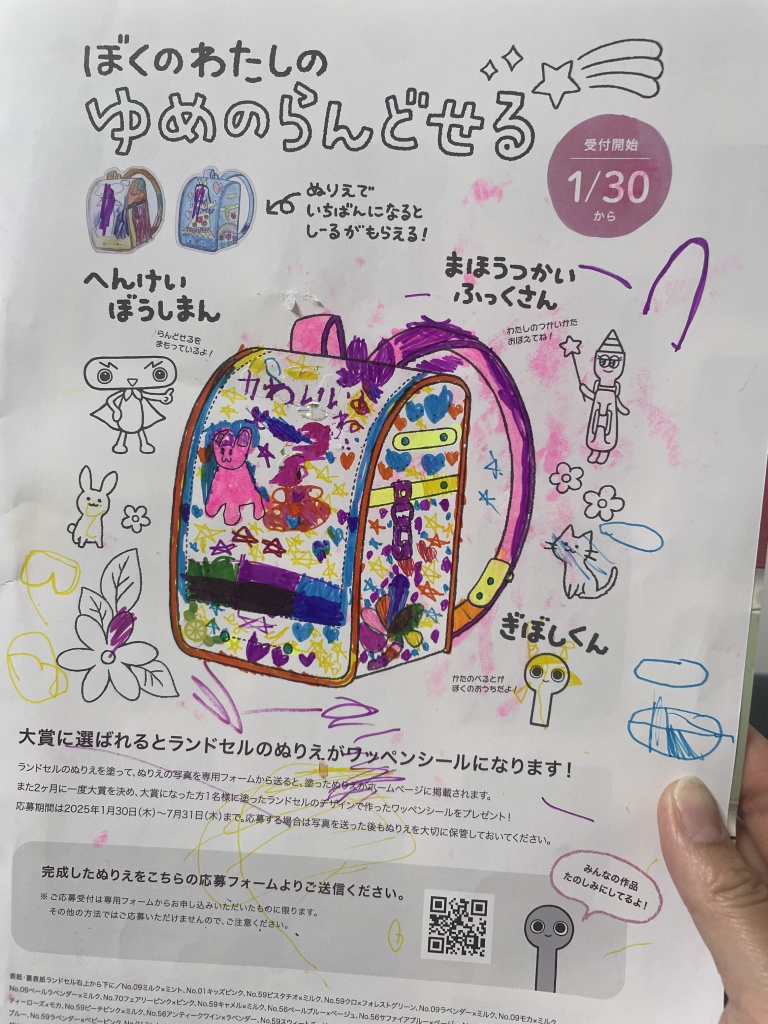 ぼくのわたしの
ゆめのらんどせる
受付開始
1/30
から
ぬりえで
いちばんになると
しーるがもらえる!
へんけい
ぼうしまん
らんどせるを
まもっているよ!
まほうつかい
ふっくさん
わたしのつかいかた
おぼえてね!
かわいい
ね
ぎぼしくん
かたのべるとが
ぼくのおうちだよ!
大賞に選ばれるとランドセルのぬりえがワッペンシールになります!
ランドセルのぬりえを塗って、ぬりえの写真を専用フォームから送ると、塗ったぬりえがホームページに掲載されます。
また2ヶ月に一度大賞を決め、大賞になった方1名様に塗ったランドセルのデザインで作ったワッペンシールをプレゼント!
応募期間は2025年1月30日(木)〜7月31日(木)まで。応募する場合は写真を送った後もぬりえを大切に保管しておいてください。
完成したぬりえをこちらの応募フォームよりご送信ください。
※ご応募受付は専用フォームからお申し込みいただいたものに限ります。
その他の方法ではご応募いただけませんので、ご注意ください。
みんなの作品
たのしみにしてるよ!
表紙・裏表紙ランドセル右上から下に/No.09ミルク×ミント、No.01キッズピンク、No.59ピスタチオ×ミルク、No.59クロ×フォレストグリーン、No.09ラベンダー×ミルク、No.09モカ×ミルク
No.09ペールラベンダー×ミルク、No.70フェアリーピンク×ピンク、No.59キャメル×ミルク、No.56ペールブルー×ベージュ、No.56サファイアブルー×ベージュ
ティーローズ×モカ、No.59ピーチピンク×ミルク、No.56アンティークワイン×ラベンダー、No.59スウィート
ブルー、No.59ラベンダー×ベビーピンク